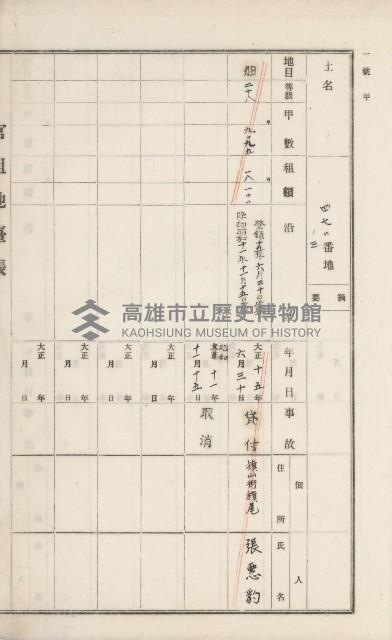 一號甲
土名
四七〇ノ三番地
摘要
地目 等級 甲數 租額 沿
畑 二十八
登錄十五年六月三十日
除却昭和十一年十一月十五日
年月日 事故 住所 氏名
個人
大正十五年六月三十日 貸付 旗山街旗尾 張惡豹
昭和十一年十一月十五日 取消
大正 年 月 日
大正 年 月 日
大正 年 月 日
大正 年 月 日
官租地臺帳
高雄市立歷史博物館
KAOHSIUNG MUSEUM OF HISTORY